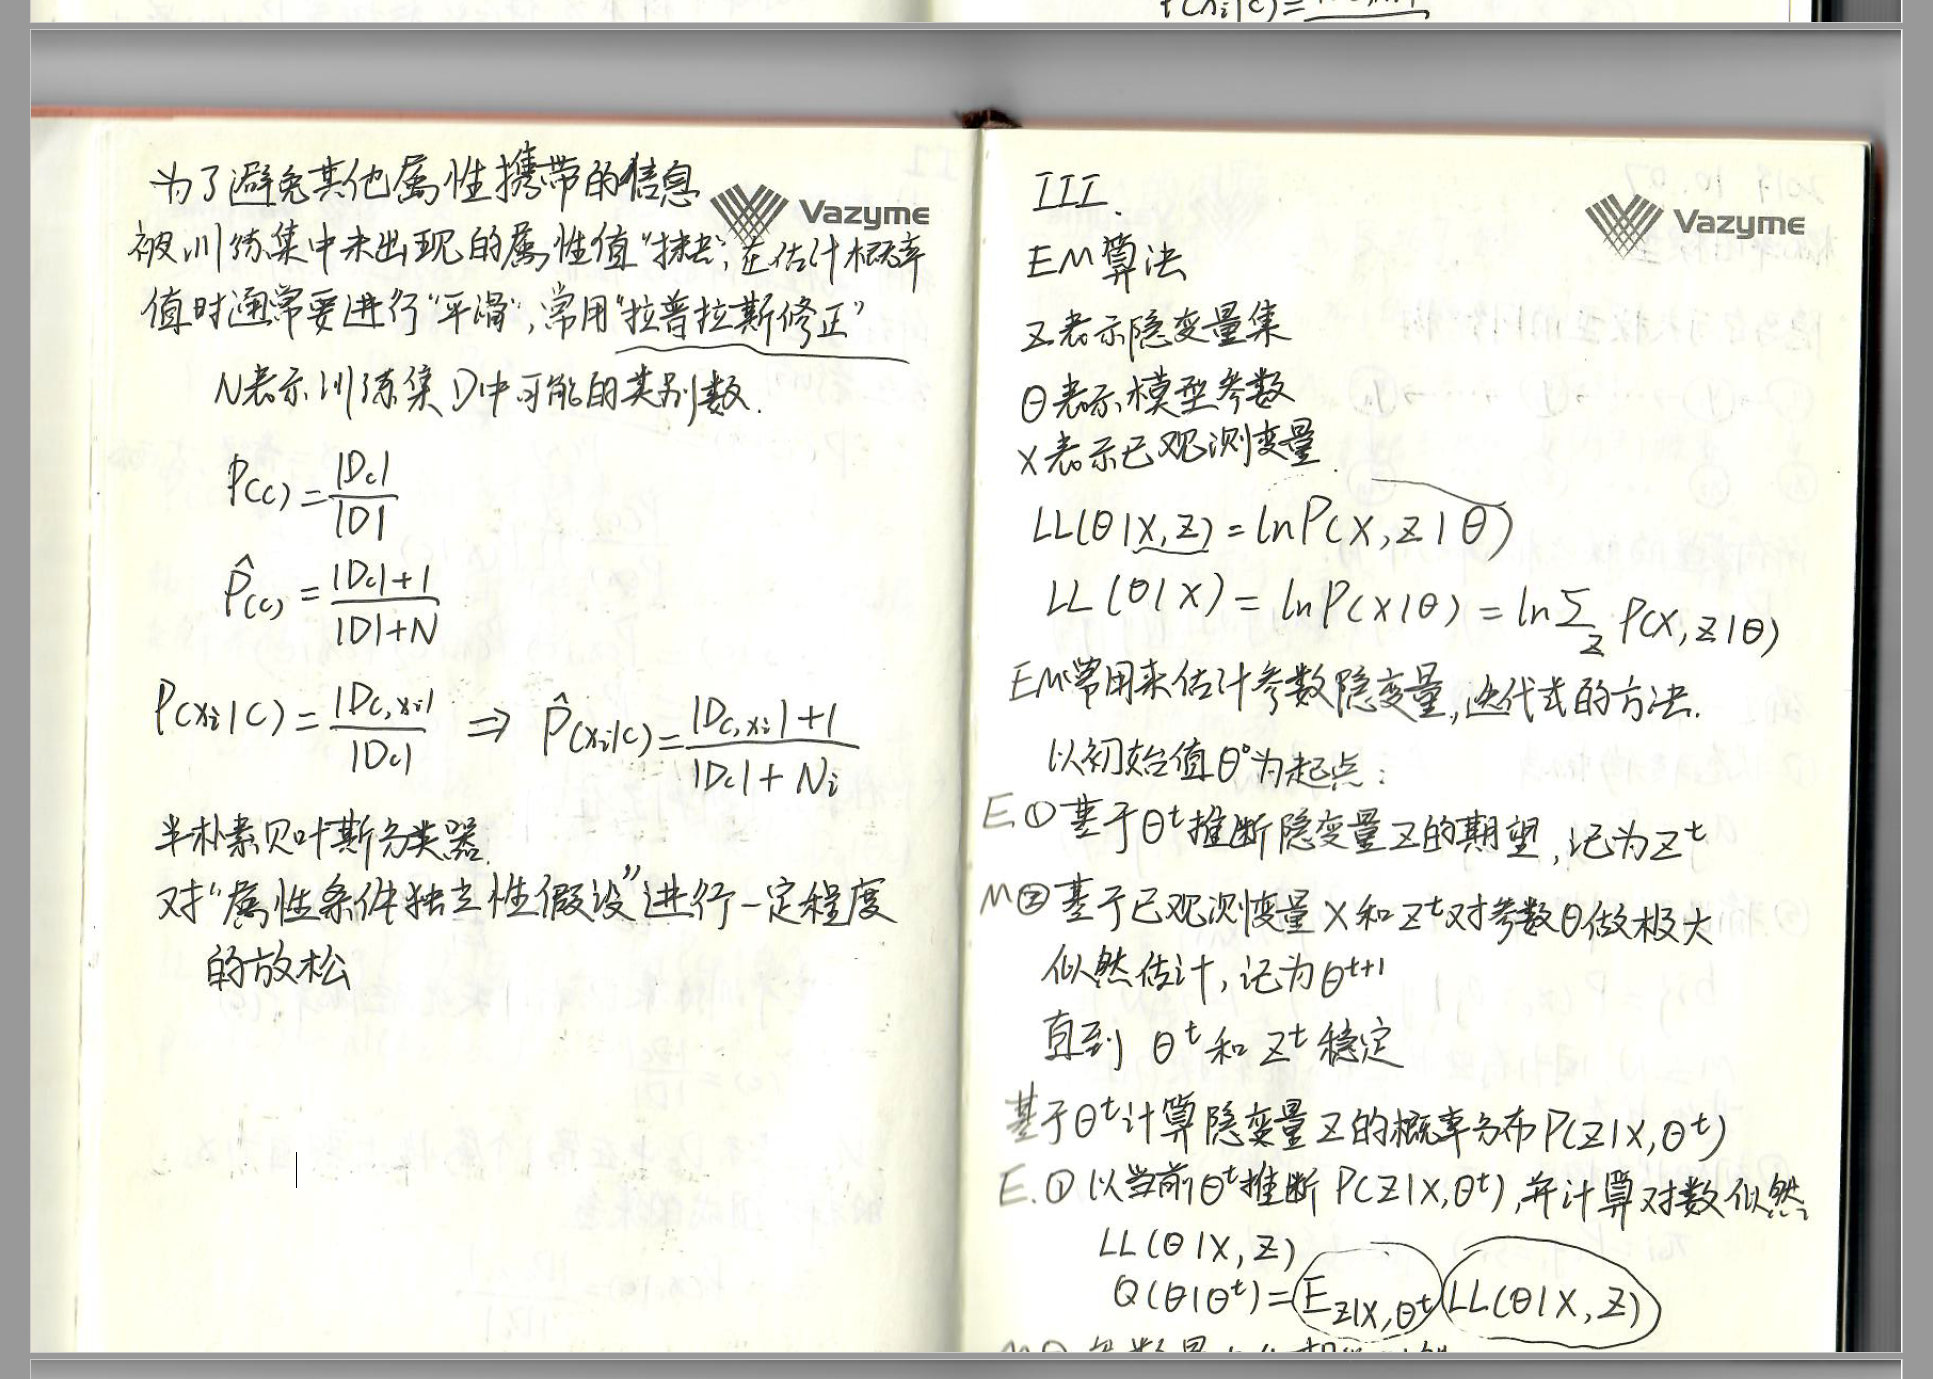 为了避免其他属性携带的信息
Vazyme
被训练集中未出现的属性值“抹去”,在估计概率
值时通常要进行“平滑”,常用“拉普拉斯修正”
N表示训练集D中可能的类别数.
P(c) = |Dc| / |D|
P̂(c) = |Dc|+1 / |D|+N
P(xi|c) = |Dc,xi| / |Dc| ⇒ P̂(xi|c) = |Dc,xi|+1 / |Dc|+Ni
半朴素贝叶斯分类器.
对“属性条件独立性假设”进行一定程度
的放松
III.
Vazyme
EM算法
Z表示隐变量集
θ表示模型参数
X表示已观测变量.
LL(θ|X,Z) = lnP(X,Z|θ)
LL(θ|X) = lnP(X|θ) = ln∑z P(X,Z|θ)
EM常用来估计参数隐变量,迭代式的方法.
以初始值θ⁰为起点:
E①基于θᵗ推断隐变量Z的期望,记为Zᵗ
M②基于已观测变量X和Zᵗ对参数θ做极大
似然估计,记为θᵗ⁺¹
直到 θᵗ和Zᵗ稳定
基于θᵗ计算隐变量Z的概率分布P(Z|X,θᵗ)
E.①以当前θᵗ推断P(Z|X,θᵗ),并计算对数似然
LL(θ|X,Z)
Q(θ|θᵗ) = E Z|X,θᵗ LL(θ|X,Z)